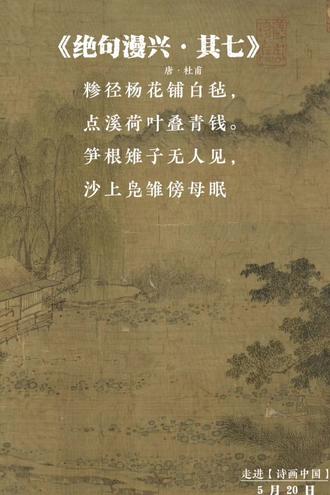 《绝句漫兴·其七》
唐·杜甫
糁径杨花铺白毡，
点溪荷叶叠青钱。
笋根雉子无人见，
沙上凫雏傍母眠
走进【诗画中国】
5月20日